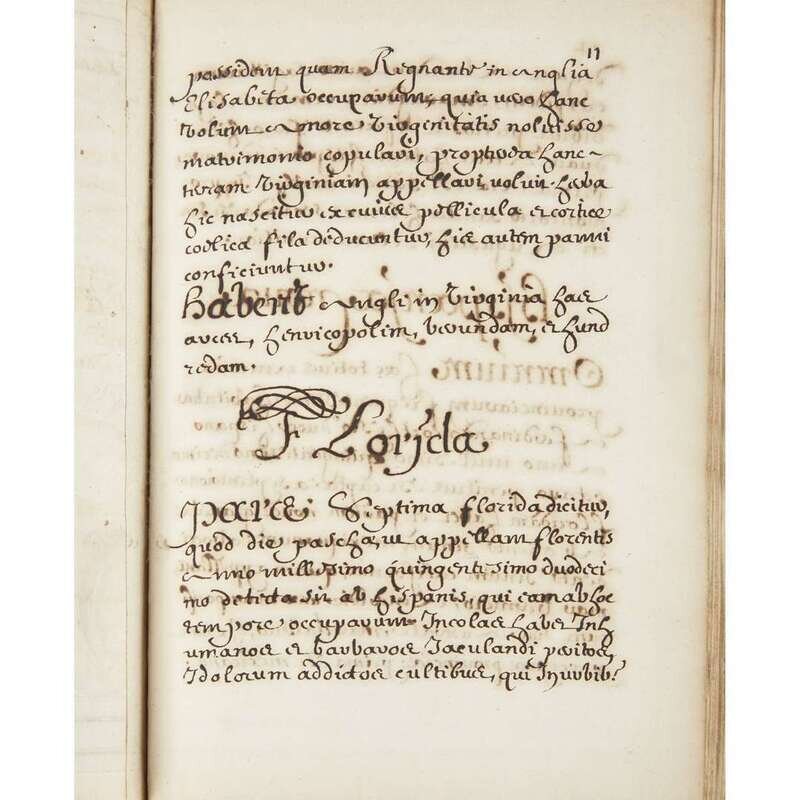 11
possident quam Regnante in Anglia
Elisabeta occuparunt, quia vero hanc
volunt Amore Virginitatis noluisse
matrimonio copulari, propterea hanc-
terram Virginiam appellari voluit. herba
hic nascitur ex cuius pellicula et cortice
fila deducuntur, hic autem panni
conficiuntur.
habent Angli in Virginia has
arces, henricopolim, bermudam, et hund
redam.
Florida
Pars Septima florida dicitur,
quod die paschatum appellant florentis
Anno millesimo quingentesimo duodeci
mo detecta sit ab hispanis, qui eam ab hoc
tempore occuparunt Incolas habet Inh
umanos et barbaros Jaculandi peritos,
Idolorum addictos cultibus, qui In urbib?